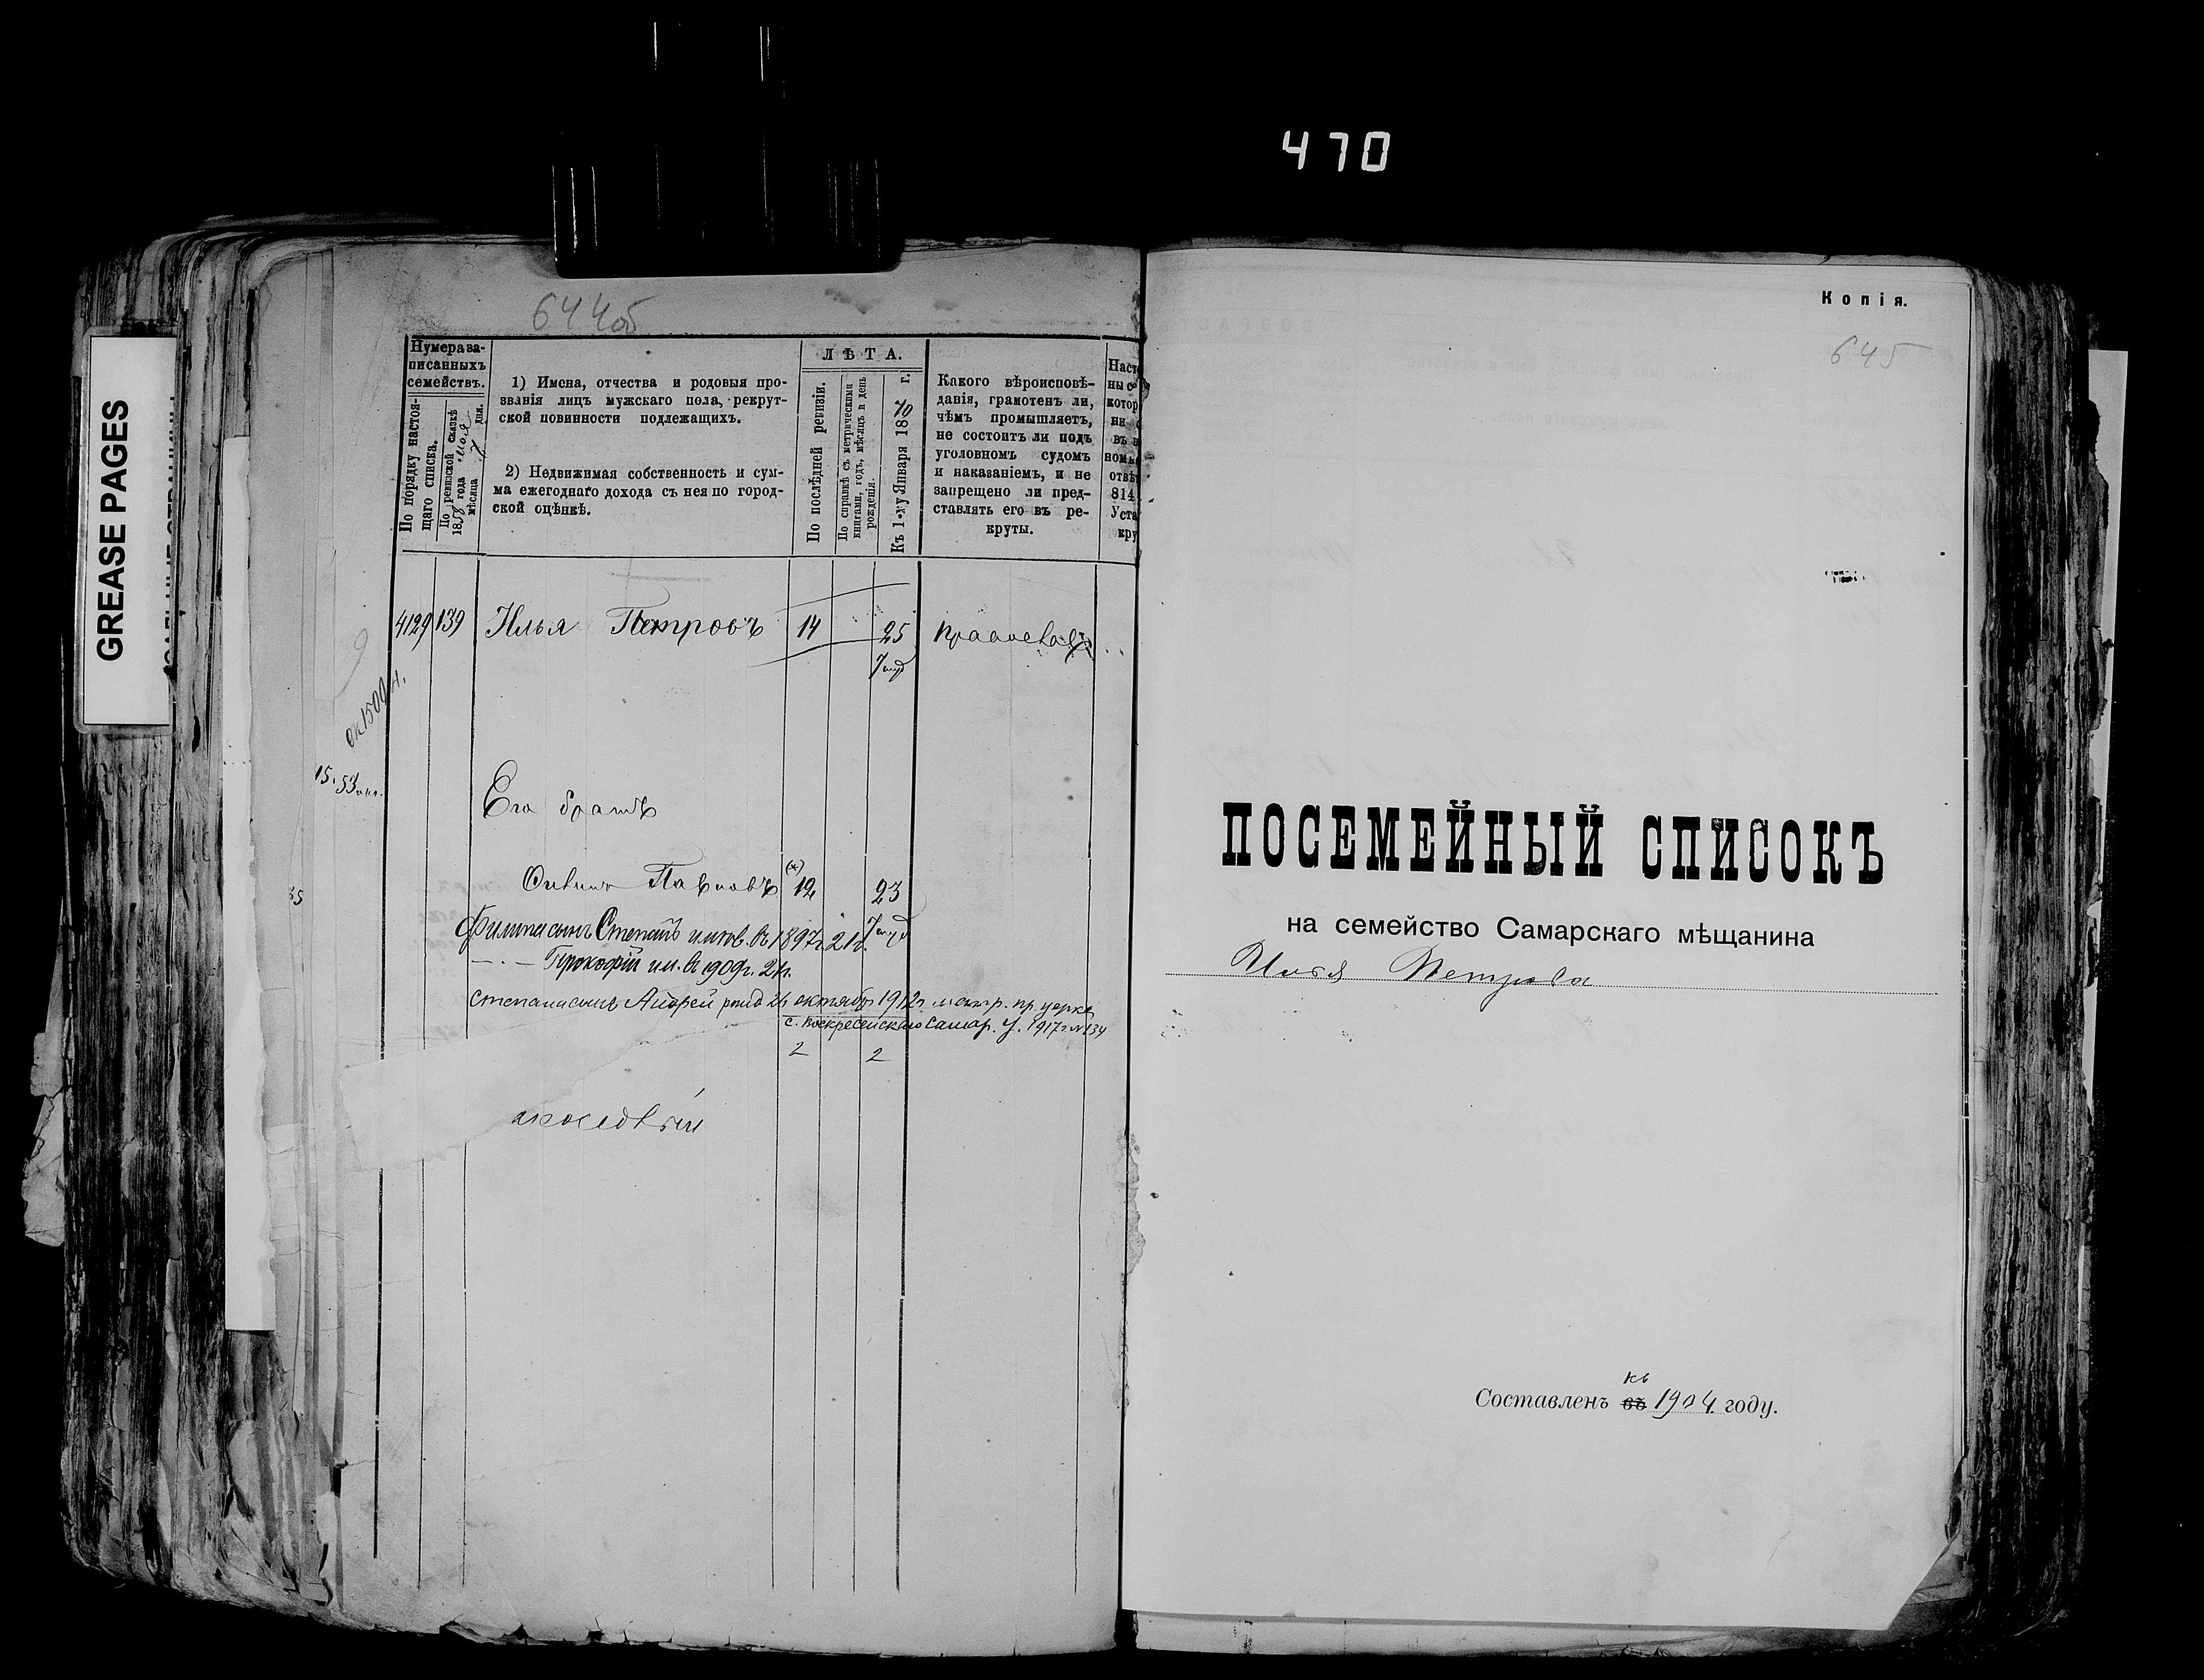 470
GREASE PAGES
644об
Нумера за-
писанныхъ
семействъ.
По порядку настоя-
щаго списка.
По ревизской сказкѣ
1858 года мая
мѣсяца 7 дня.
1) Имена, отчества и родовыя про-
званія лицъ мужскаго пола, рекрут-
ской повинности подлежащихъ.
2) Недвижимая собственность и сум-
ма ежегоднаго дохода съ нея по город-
ской оцѣнкѣ.
ЛѢТА.
По послѣдней ревизіи.
По справкѣ съ метрическими
книгами, годъ, мѣсяцъ и день
рожденія.
Къ 1-му Января 1870 г.
Какого вѣроисповѣ-
данія, грамотенъ ли,
чѣмъ промышляетъ,
не состоитъ ли подъ
уголовномъ судомъ
и наказаніемъ, и не
запрещено ли пред-
ставлять его въ ре-
круты.
Наст
ны с
котор
ни
въ в
номъ
отвѣ
814
Уста
кру
4129 139 Илья Петровъ 14 25
ок 1500 н.
15. 53
Его братъ
Павловъ 12 23
Филипа сынъ Степанъ въ 1897г 21г.
Прокофій им. въ 1909г. 21г.
Степана сынъ Андрей рожд 26 октября 1912г метр. пр церкв
с. Воскресенскаго Самар. у. 1917г. №134
2 2
Копія.
645
ПОСЕМЕЙНЫЙ СПИСОКЪ
на семейство Самарскаго мѣщанина
Илья Петрова
къ
Составленъ въ 1904 году.